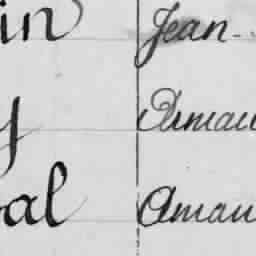 in Jean-
y Armau
al Amau